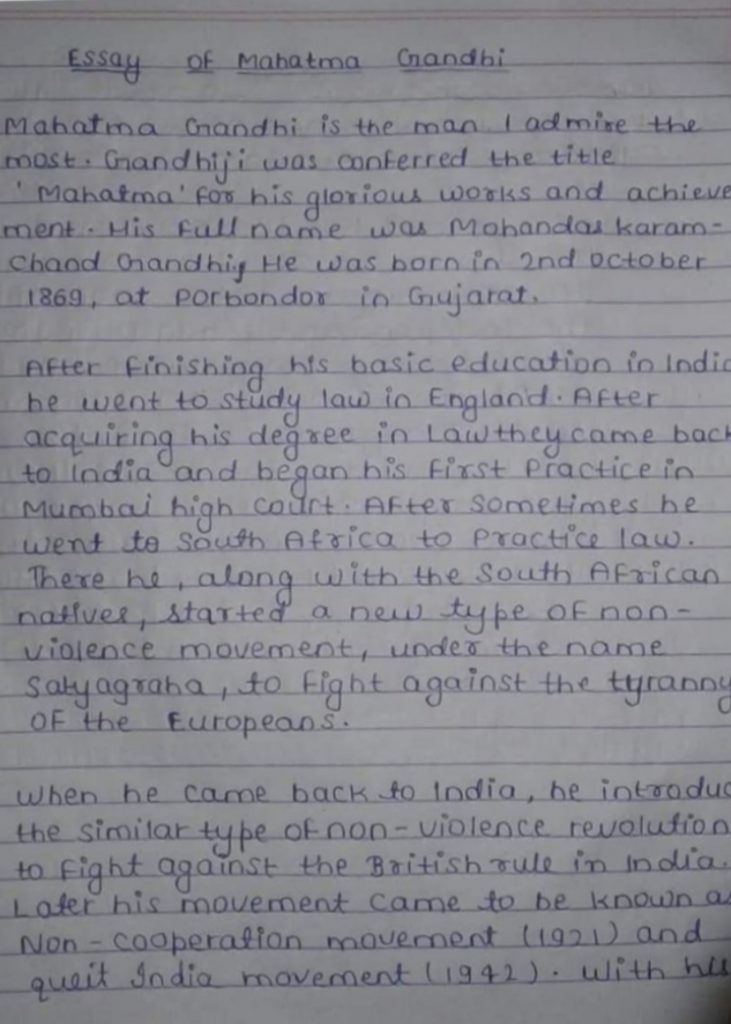 Essay of Mahatma Gandhi
Mahatma Gandhi is the man I admire the
most. Gandhiji was conferred the title
'Mahatma' for his glorious works and achieve
ment. His full name was Mohandas karam-
chand Gandhi, He was born in 2nd october
1869, at porbondor in Gujarat.
After finishing his basic education in India
he went to study law in England. After
acquiring his degree in Law they came back
to India and began his first practice in
Mumbai high court. After sometimes he
went to South Africa to practice law.
There he, along with the South African
natives, started a new type of non-
violence movement, under the name
Satyagraha, to fight against the tyranny
of the Europeans.
When he came back to India, he introduc
the similar type of non-violence revolution
to fight against the British rule in India.
Later his movement came to be known as
Non-cooperation movement (1921) and
queit India movement (1942). With his